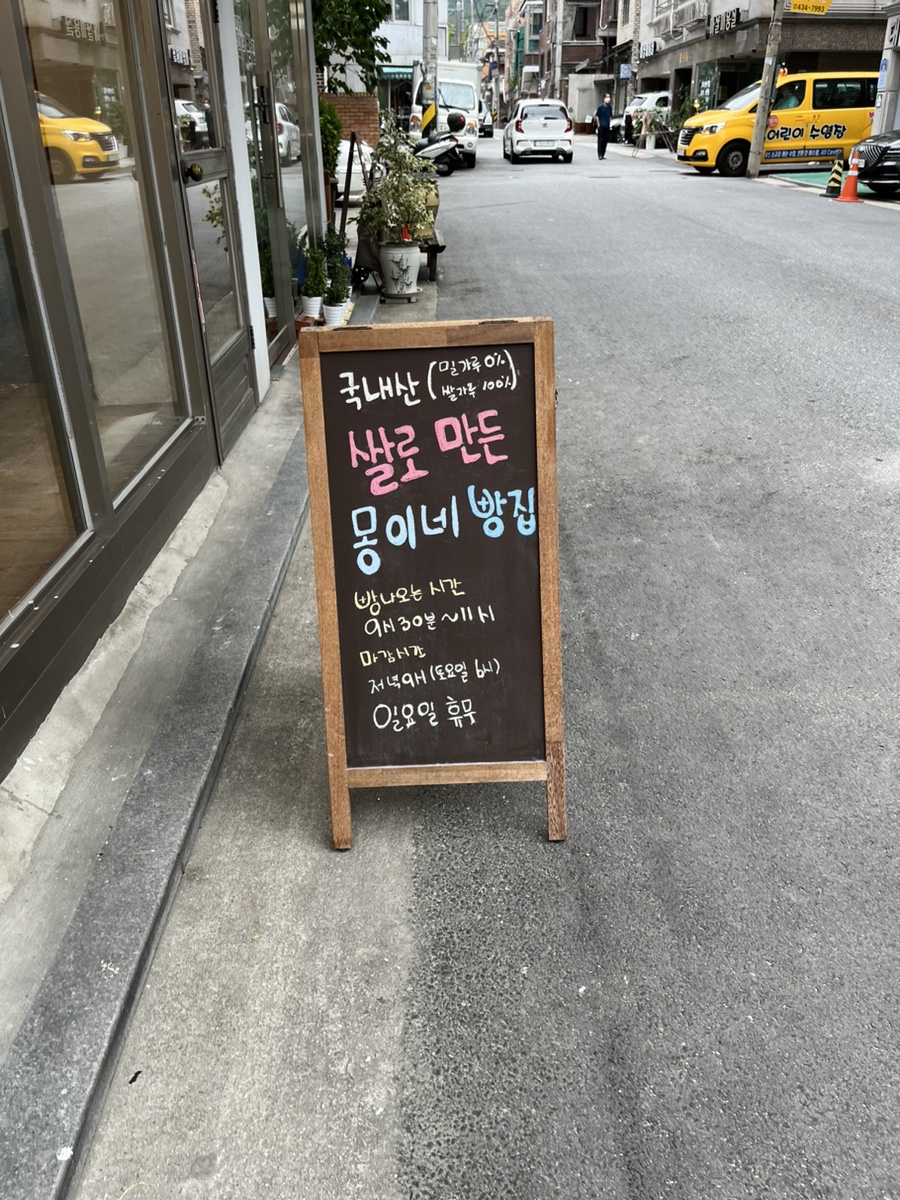 국내산 (밀가루 0%
쌀가루 100%)
쌀로 만든
몽이네 빵집
빵나오는 시간
9시 30분 ~ 11시
마감시간
저녁 9시 (토요일 6시)
일요일 휴무
어린이 수영장
434-7993